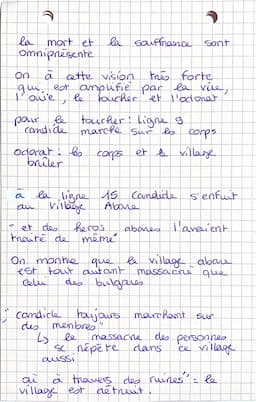 la mort et la souffrance sont
omniprésente
on à cette vision très forte
qui est amplifié par la vue,
l'ouïe, le toucher et l'odorat
pour le toucher : ligne 9
candide marche sur les corps
odorat : les corps et le village
brûler
à la ligne 15 Candide s'enfuit
au village Abare
"et des heros abares l'avaient
traité de même"
On montre que le village abare
est tout autant massacré que
celui des bulgares
"candide toujours marchant sur
des membres"
↳ le massacre des personnes
se répète dans ce village
aussi
où à travers des ruines" : le
village est détruit.